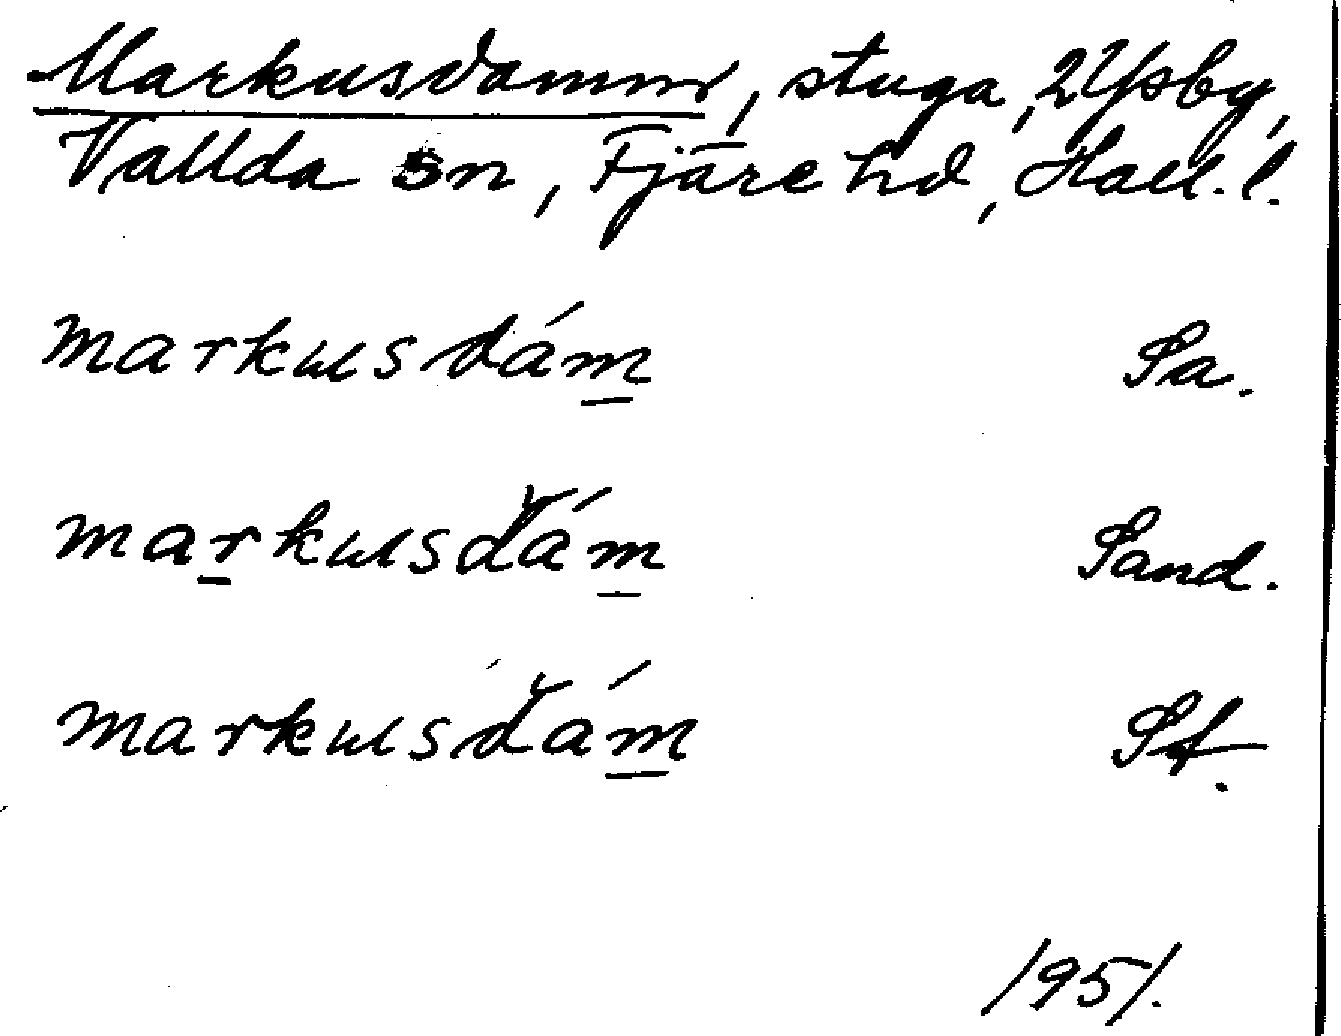 Markusdamm, stuga, 2 Ysby,
Vallda sn, Fjäre hd, Hall. l.
markusdám̲ Sa.
mar̲kusdám̲ Sand.
markusdám̲ Sf.
1951.